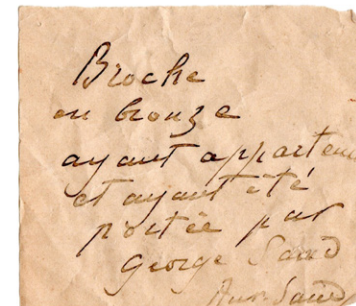 Broche
en bronze
ayant apparten
et ayant été
portée par
George Sand
Aur Sand